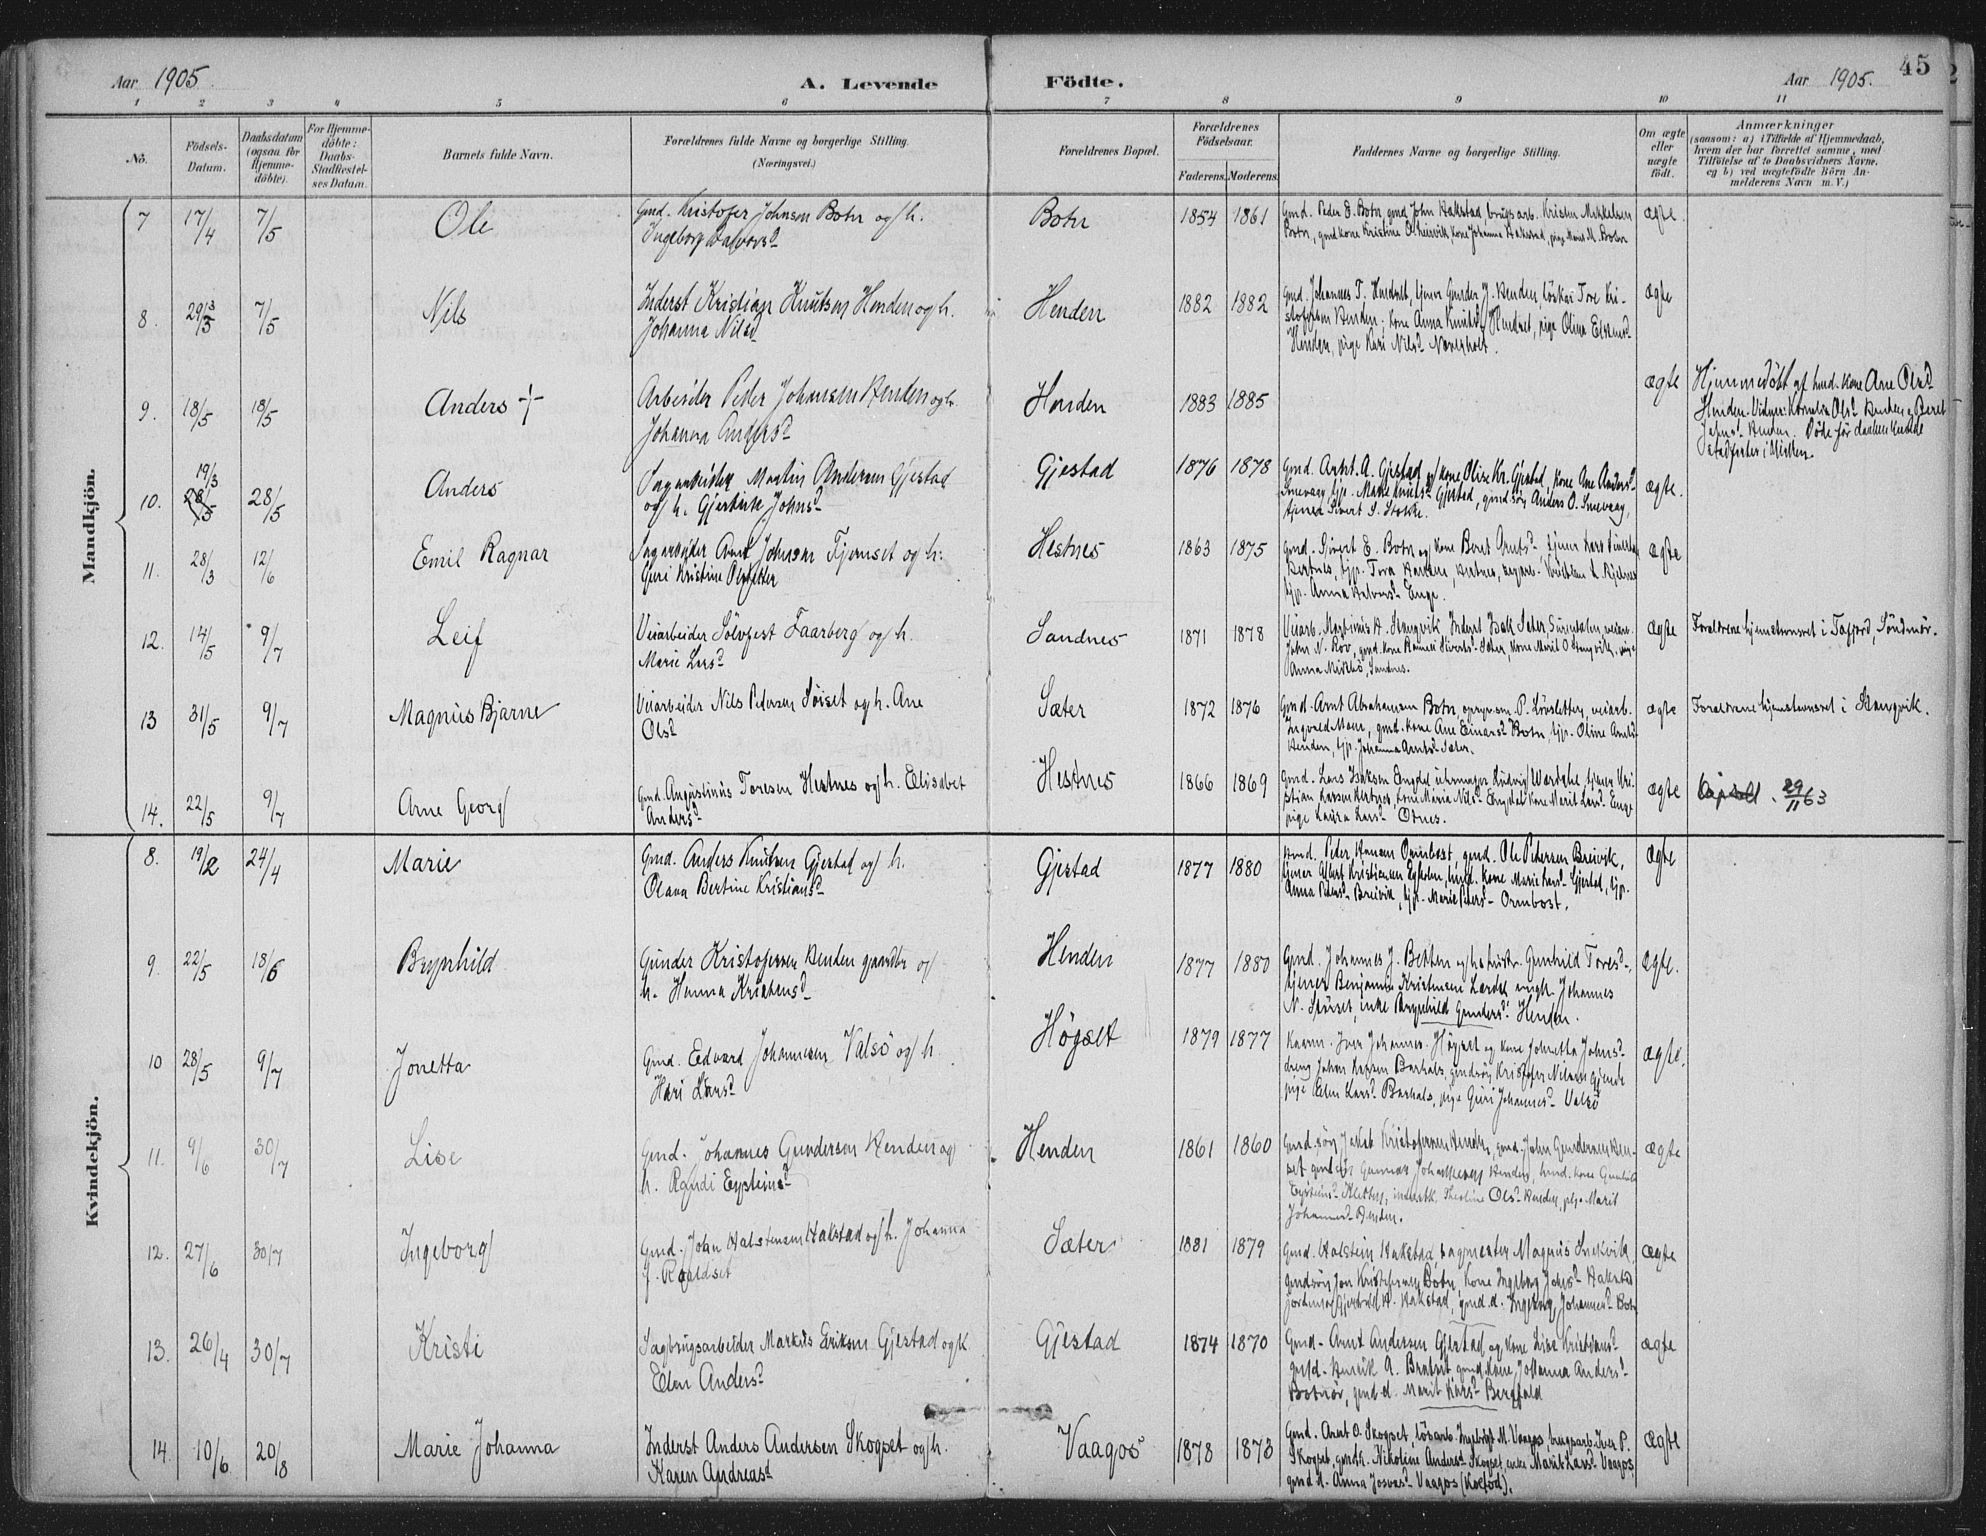 Aar 1905.
A. Levende Födte.
Aar 1905.
45
1 2 3 4 5 6 7 8 9 10 11
No.
Födsels-Datum.
Daabsdatum (ogsaa for Hjemme-döbte).
For Hjemme-döbte: Daabs-Stadfæstel-ses Datum.
Barnets fulde Navn.
Forældrenes fulde Navne og borgerlige Stilling. (Næringsvei.)
Forældrenes Bopæl.
Forældrenes Födselsaar.
Faderens. Moderens.
Faddernes Navne og borgerlige Stilling.
Om ægte eller uægte födt.
Anmærkninger
(saasom: a) i Tilfælde af Hjemmedaab, hvem der har forrettet samme, med Tilföielse af to Daabsvidners Navne, og b) ved uægtefödte Börn An-melderens Navn m. V.)
Mandkjön.
7 17/4 7/5 Ole
Gmd. Kristofer Johnsen Botn og h.
Ingeborg Halvorsd
Botn 1854 1861
Gmd. Peder E. Botn, gmd John Hakstad, brugsarb. Kristen Mikkelsen
Botn, gmdkone Kristine kone Johanna Hakstad, pige M. Botn
ægte.
8. 29/3 7/5 Nils
Inderst Kristian Knutsen Henden og h.
Johanna Nilsd
Henden 1882 1882
Gmd. Johannes T. tjener Gunder J. Henden, löskar Tore Kri-
stofersen Henden, kone Anna Knutsd pige Olina
Henden, pige Kari Nilsd
ægte
9. 18/5 18/5 Anders +
Arbeider Peder Johansen Henden og h.
Johanna Andersd
Henden 1883 1885
ægte
Hjemmedöbt af kone Ane Olsd
Henden. Vidner: Kornelia Olsd Henden og Beret
Johnsd Henden. Döde för daaben kunde
stadfæstes i Kirken.
10. 19/3 28/5 Anders
Sagarbeider Martin Andersen Gjestad
og h. Gjertrude Johnsd
Gjestad 1876 1878
Gmd. Arnt A. Gjestad og kone Olise Kr. Gjestad, kone Ane Andersd
Snevaag, tjp. Marie Gjestad, gmdsön Anders O. Snevaag,
Sivert S. Stokke.
ægte.
11. 28/3 12/6 Emil Ragnar
Sagarbeider Arnt Johnsen Fjerset og h.
Guri Kristine Olsdatter
Hestnes 1863 1875
Gmd. Sivert E. Botn og kone Beret Arntsd tjener
Hestnes, tjp. Tora Hestnes,
tjp. Anna Halvorsd Enge.
ægte
12. 14/5 9/7 Leif
Veiarbeider Sölvfest Faarberg og h.
Marie Larsd
Sandnes 1871 1878
Veiarb. Martinus H. Stangvik, Inderst Isak Sæter Surendalen, veiarb.
John N. Rov, gmd. kone Sivertsd Sæter, kone Marit O Stangvik, pige
Anna Sandnes.
ægte
Forældrene hjemstavnsret i Tafjord, Söndmör.
13 31/5 9/7 Magnus Bjarne
Veiarbeider Nils Pedersen Söiset og h. Ane
Olsd
Sæter 1872 1876
Gmd. Arnt Abrahamsen Botn, P. Lövsletten, veiarb.
Ingvald Moen, gmd. kone Ane Einarsd Botn, tjp. Oline Arntsd
Henden, tjp. Johanna Arntsd Sæter.
ægte
Forældrene hjemstavnsret i Stangvik.
14. 22/5 9/7 Arne Georg
Gmd. Augustinus Toresen Hestnes og h. Elisabet
Andersd
Hestnes 1866 1869
Gmd. Lars Isaksen Engdal, urmager Ludvig Wærdahl, tjener Kri-
stian Larsen Hestnes, kone Maria Nilsd Engdal, kone Marit Larsd Enge
pige Laura Larsd Otnes.
ægte
29/11 63
Kvindekjön.
8. 19/2 24/4 Marie
Gmd. Anders Knutsen Gjestad og h.
Olava Bertine Kristiansd
Gjestad 1877 1880
Gmd. Peder Hansen Ormbost, gmd. Ole Petersen Breivik,
tjener Albert Kristiansen kone Marie Larsd Gjestad, tjp.
Anna Petersd Breivik, tjp. Marie Petersd Ormbost.
ægte
9. 22/5 18/6 Brynhild
Gunder Kristofersen Henden gaardbr og
h. Hanna Kristensd
Henden 1877 1880
Gmd. Johannes J. Betten og hustr. Gunhild Toresd
tjener Benjamin Kristensen ungk. Johannes
N. Störset, enke Brynhild Gundersd Henden.
ægte.
10 28/5 9/7 Jonetta
Gmd. Edvard Johannesen Valsö og h.
Kari Larsd
Högset 1879 1877
Kaarm. Iver Johannes. Högset og kone Johnetta Johnsd
dreng Johan Larsen Barhals, gmdsön Kristofer Nilssen Gjende
pige Elen Larsd Barhals, pige Guri Johannesd Valsö
ægte.
11. 9/6 30/7 Lise
Gmd. Johannes Gundersen Henden og
h. Randi Eysteinsd
Henden 1861 1860
Gmd. sön Jakob Kristofersen Henden, gmd. John Gundersen
gmdsön Gunnar Johannessen Henden, kone Gunhild
Eysteinsd Theoline Olsd Henden, pige Marit
Johannesd Henden.
ægte
12. 27/6 30/7 Ingeborg
Gmd. John Halstensen Hakstad og h. Johanna
f. Roaldset
Sæter 1881 1879
Gmd. Halstein Hakstad, sagmester Magnus Snekvik,
Gmdsön Jon Kristofersen Botn, kone Ingeborg Johnsd Hakstad
Jordmor Gjertrud H. Hakstad, gmd. d. Ingeborg Johannesd Botn
ægte
13. 26/4 30/7 Kristi
Sagbrugsarbeider Markus Eriksen Gjestad og k
Elen Andersd
Gjestad 1874 1870
Gmd. Arnt Andersen Gjestad og kone Lise Kristiansd
gmd. Henrik A. gmd. kone Johanna Andersd
gmd. d. Marit Larsd Bergfald
ægte
14. 10/6 20/8 Marie Johanna
Inderst Anders Andersen Skogset og h.
Karen Andreasd
Vaagos 1878 1873
Gmd. Arnt O. Skogset, lösarb. Ingebrigt M. Vaagos, brugsarb. Iver P.
Skogset, gmdk. Nikoline Andersd Skogset, enke Marit Larsd Vaagos,
gmd d. Anna Josvasd Vaagos
ægte